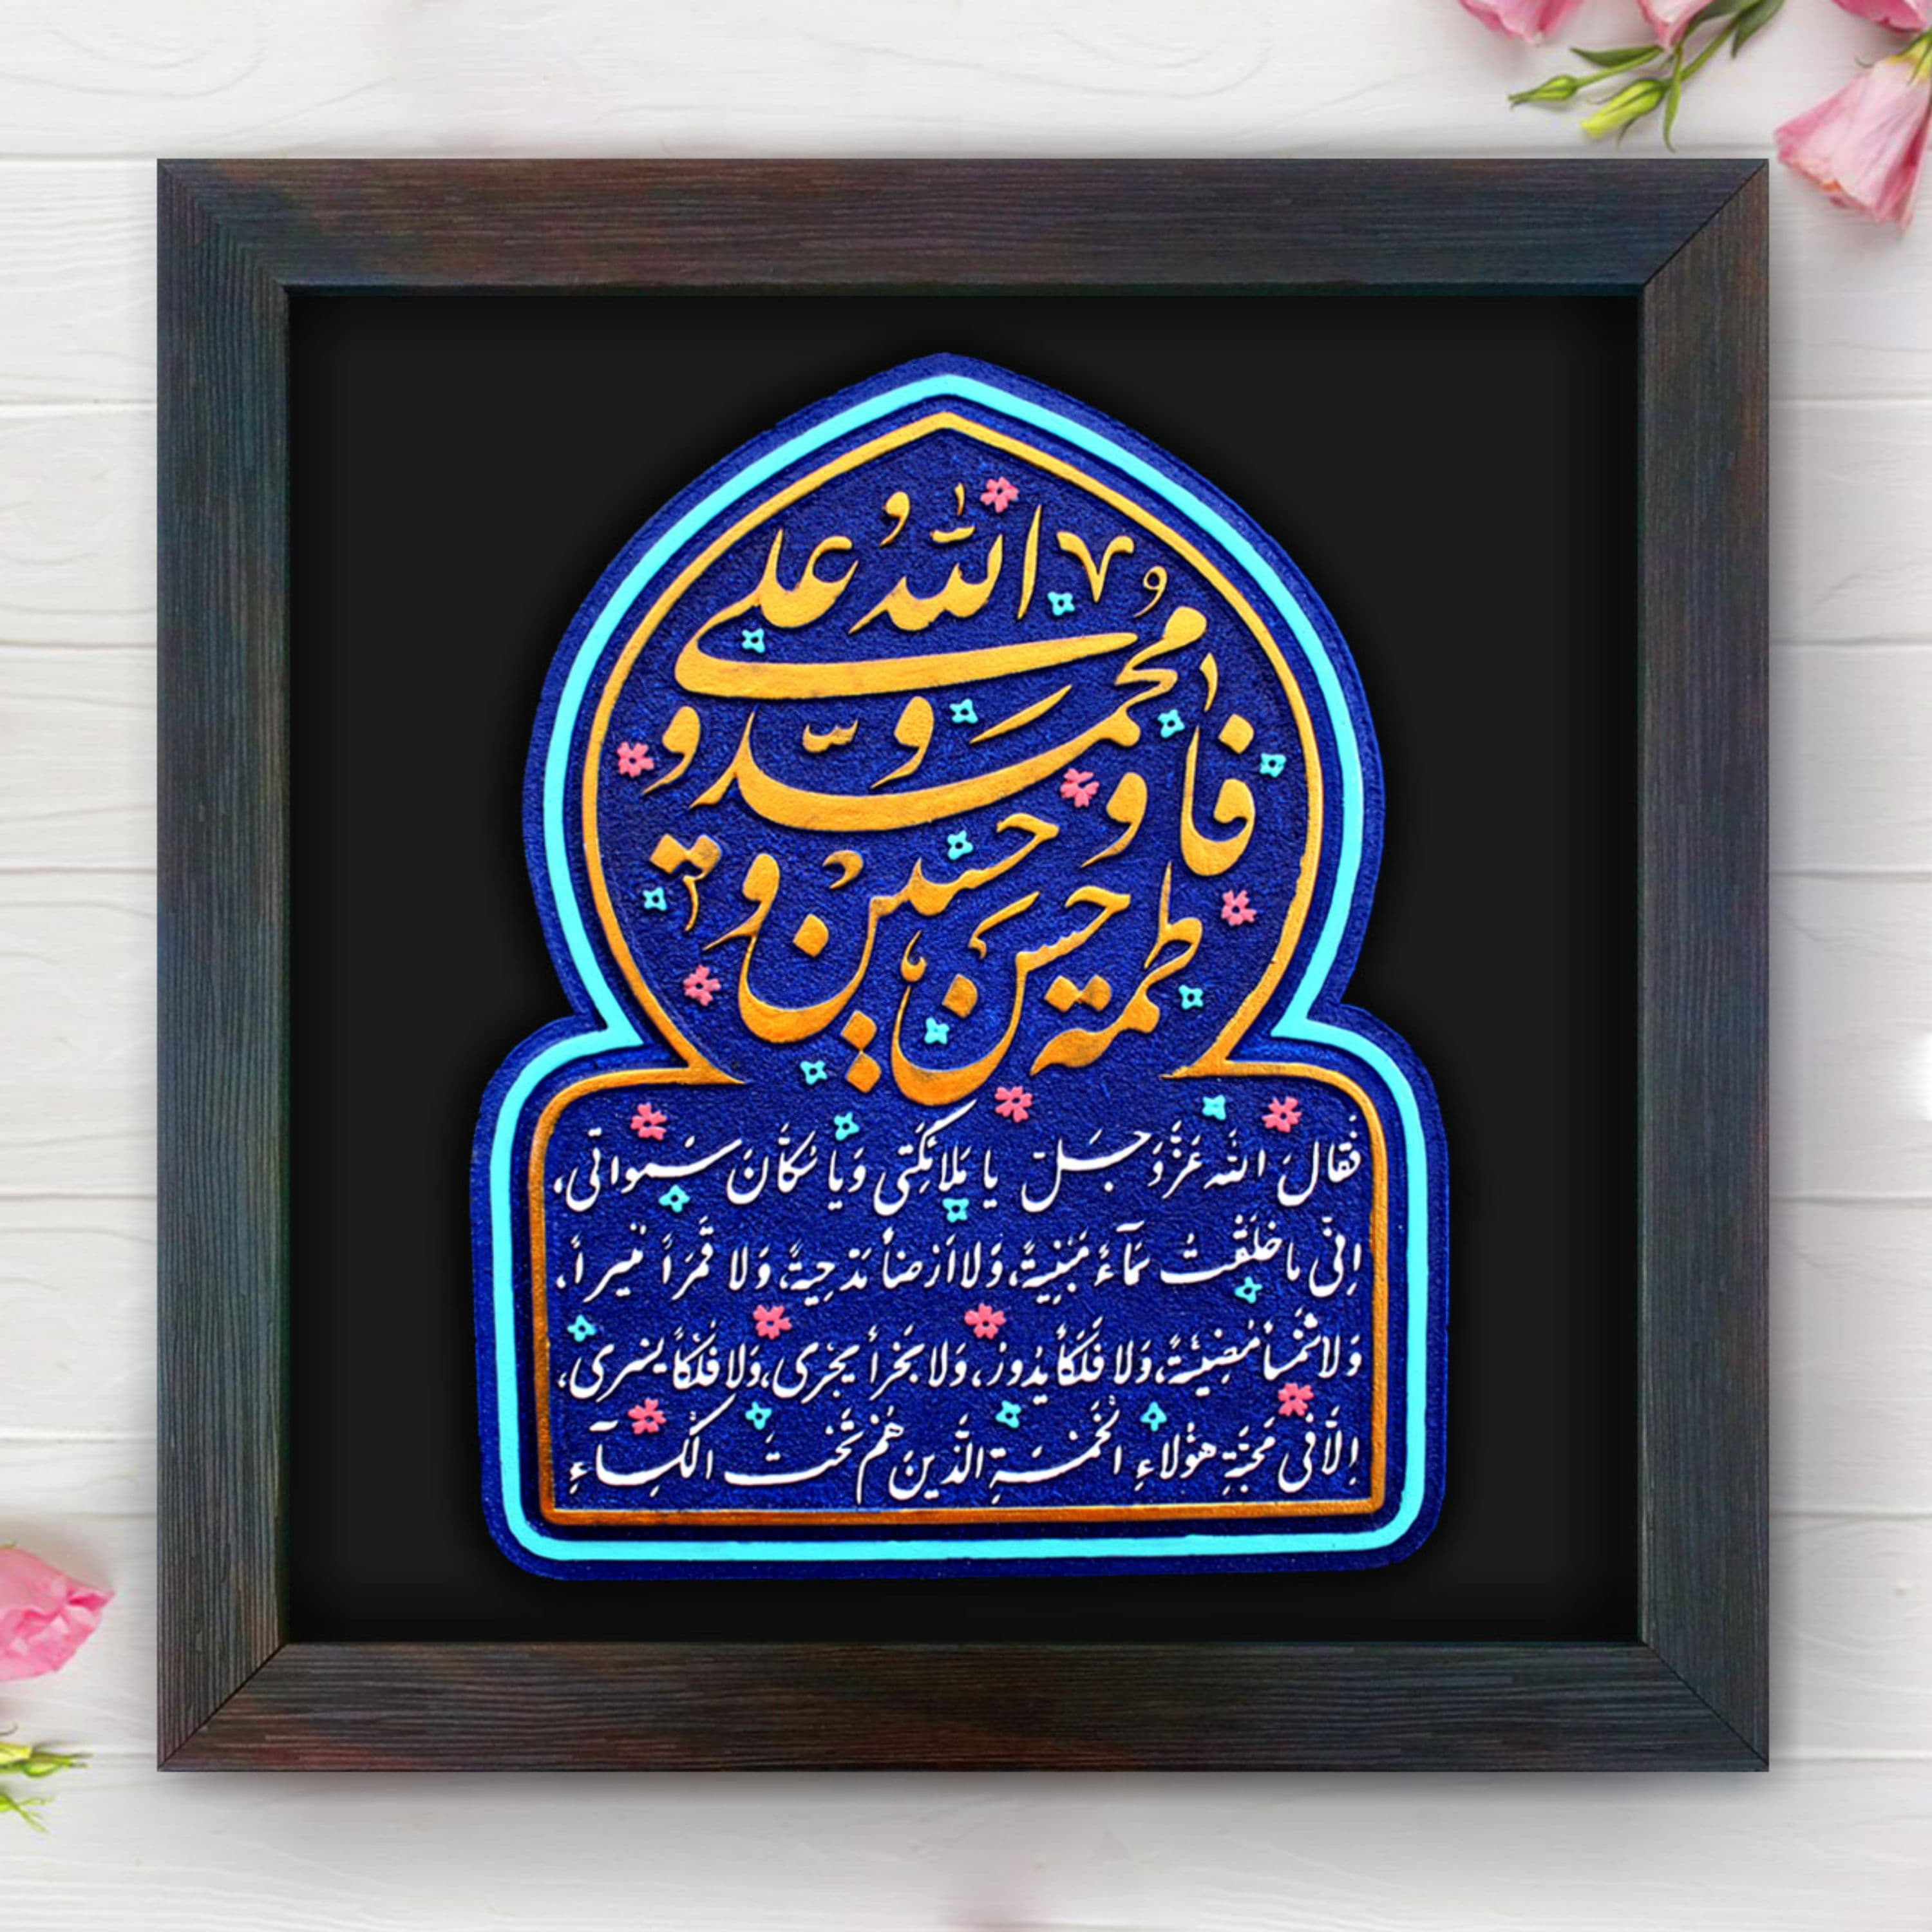 الله و علی
و محمد و
فا و حسین و
طمة حسن
فَقالَ اللهُ عَزَّوَجَلَّ یا مَلائِکَتی وَیا سُکّانَ سَمواتی،
اِنّی ما خَلَقْتُ سَمآءً مَبْنِیَّةً، وَلا اَرْضاً مَدْحِیَّةً، وَلا قَمَراً مُنیراً،
وَلا شَمْساً مُضِیْئَةً، وَلا فَلَکاً یَدُورُ، وَلا بَحْراً یَجْری، وَلا فُلْکاً یَسْری،
اِلاّ فی مَحَبَّةِ هؤُلاءِ الْخَمْسَةِ الَّذینَ هُمْ تَحْتَ الْکِسآءِ